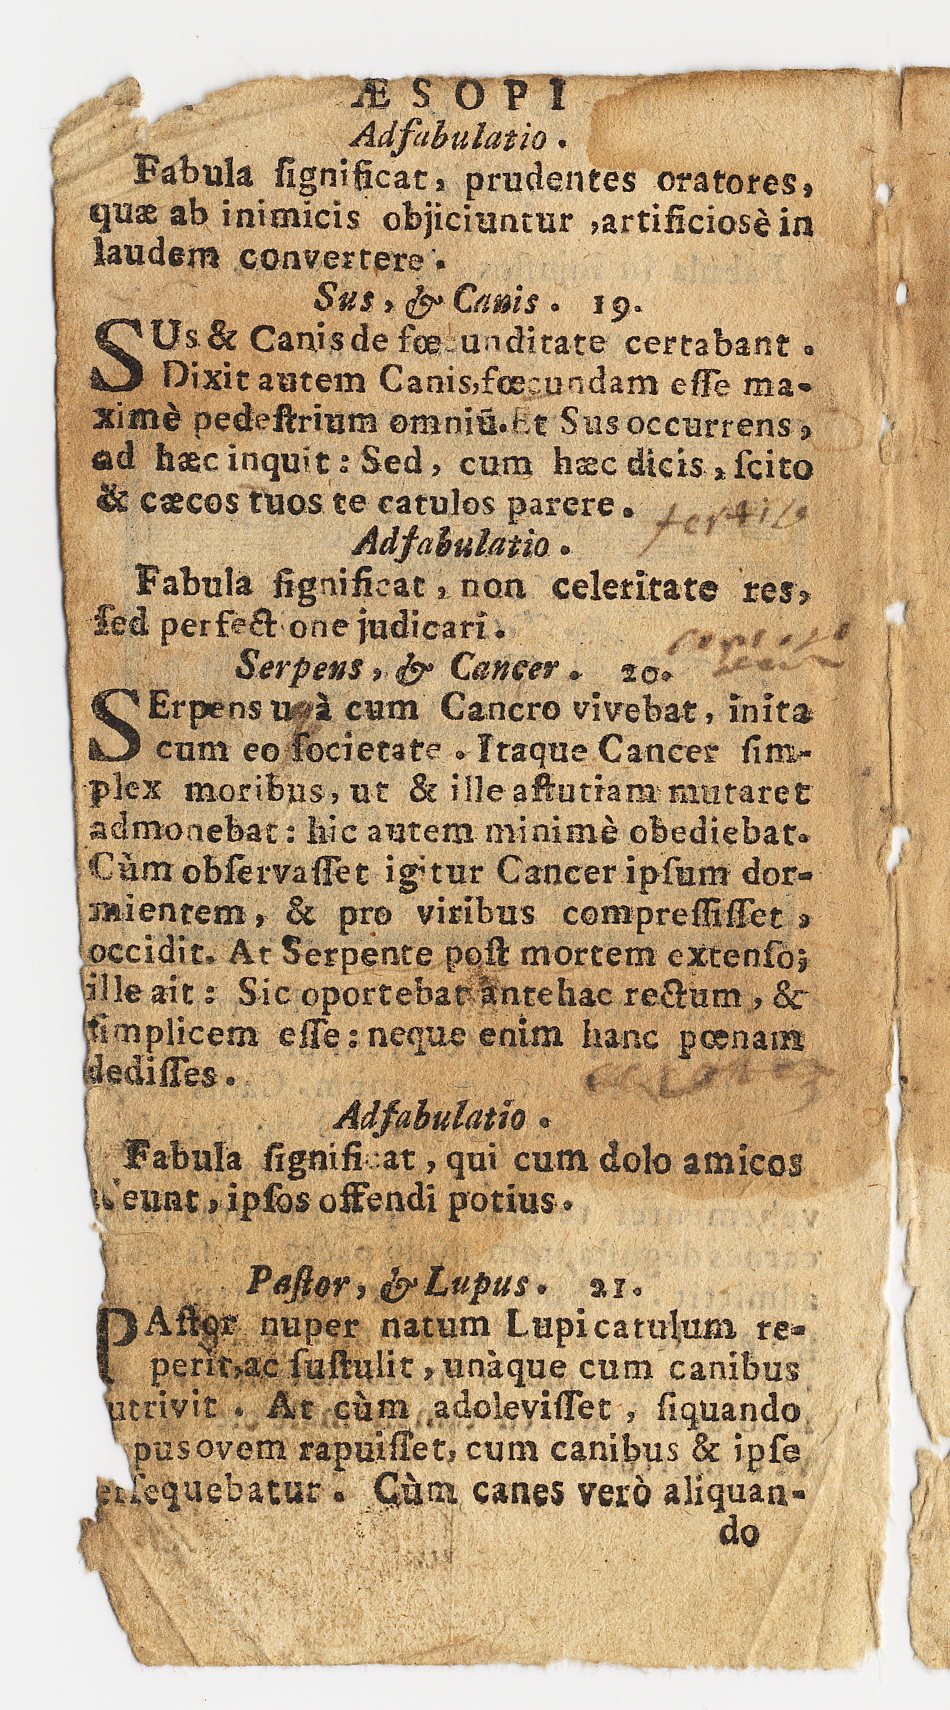 ÆSOPI
Adfabulatio.
Fabula ſignificat, prudentes oratores,
quæ ab inimicis objiciuntur, artificiosè in
laudem convertere.
Sus, & Canis. 19.
SUs & Canis de fœcunditate certabant.
Dixit autem Canis, fœcundam eſſe ma-
ximè pedeſtrium omniū. Et Sus occurrens,
ad hæc inquit: Sed, cum hæc dicis, ſcito
& cæcos tuos te catulos parere.
fertile
Adfabulatio.
Fabula ſignificat, non celeritate res,
ſed perfectione judicari.
Serpens, & Cancer. 20.
SErpens unà cum Cancro vivebat, inita
cum eo ſocietate. Itaque Cancer ſim-
plex moribus, ut & ille aſtutiam mutaret
admonebat: hic autem minimè obediebat.
Cùm obſervaſſet igitur Cancer ipſum dor-
mientem, & pro viribus compreſſiſſet,
occidit. At Serpente poſt mortem extenſo;
ille ait: Sic oportebat antehac rectum, &
ſimplicem eſſe: neque enim hanc pœnam
dediſſes.
Adfabulatio.
Fabula ſignificat, qui cum dolo amicos
adeunt, ipſos offendi potius.
Paſtor, & Lupus. 21.
PAſtor nuper natum Lupi catulum re-
perit, ac ſuſtulit, unàque cum canibus
utrivit. At cùm adoleviſſet, ſiquando
pus ovem rapuiſſet, cum canibus & ipſe
erſequebatur. Cùm canes verò aliquan-
do